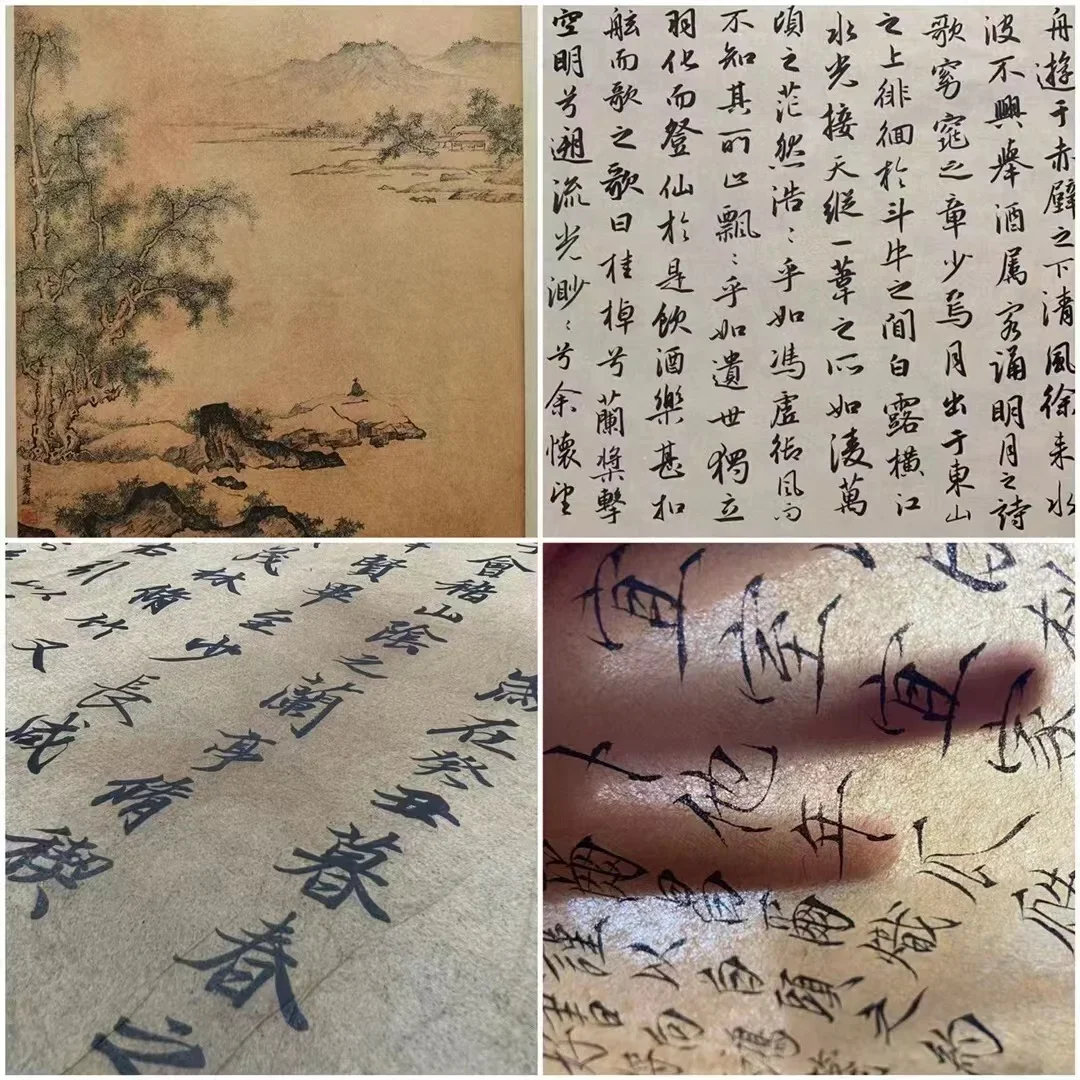 舟遊于赤壁之下清風徐来水
波不興舉酒属客誦明月之詩
歌窈窕之章少焉月出于東山
之上徘徊於斗牛之間白露横江
水光接天縱一葦之所如凌萬
頃之茫然浩〻乎如馮虚御風而
不知其所止飄〻乎如遺世獨立
羽化而登仙於是飲酒樂甚扣
舷而歌之歌曰桂棹兮蘭槳擊
空明兮遡流光渺〻兮余懷望
歲在癸丑暮春之
會稽山陰之蘭亭脩禊
賢畢至少長咸
茂林脩竹又
引以
宜室宜家
卜他年瓜
爾昌爾熾
謹以白頭之約
書向鴻